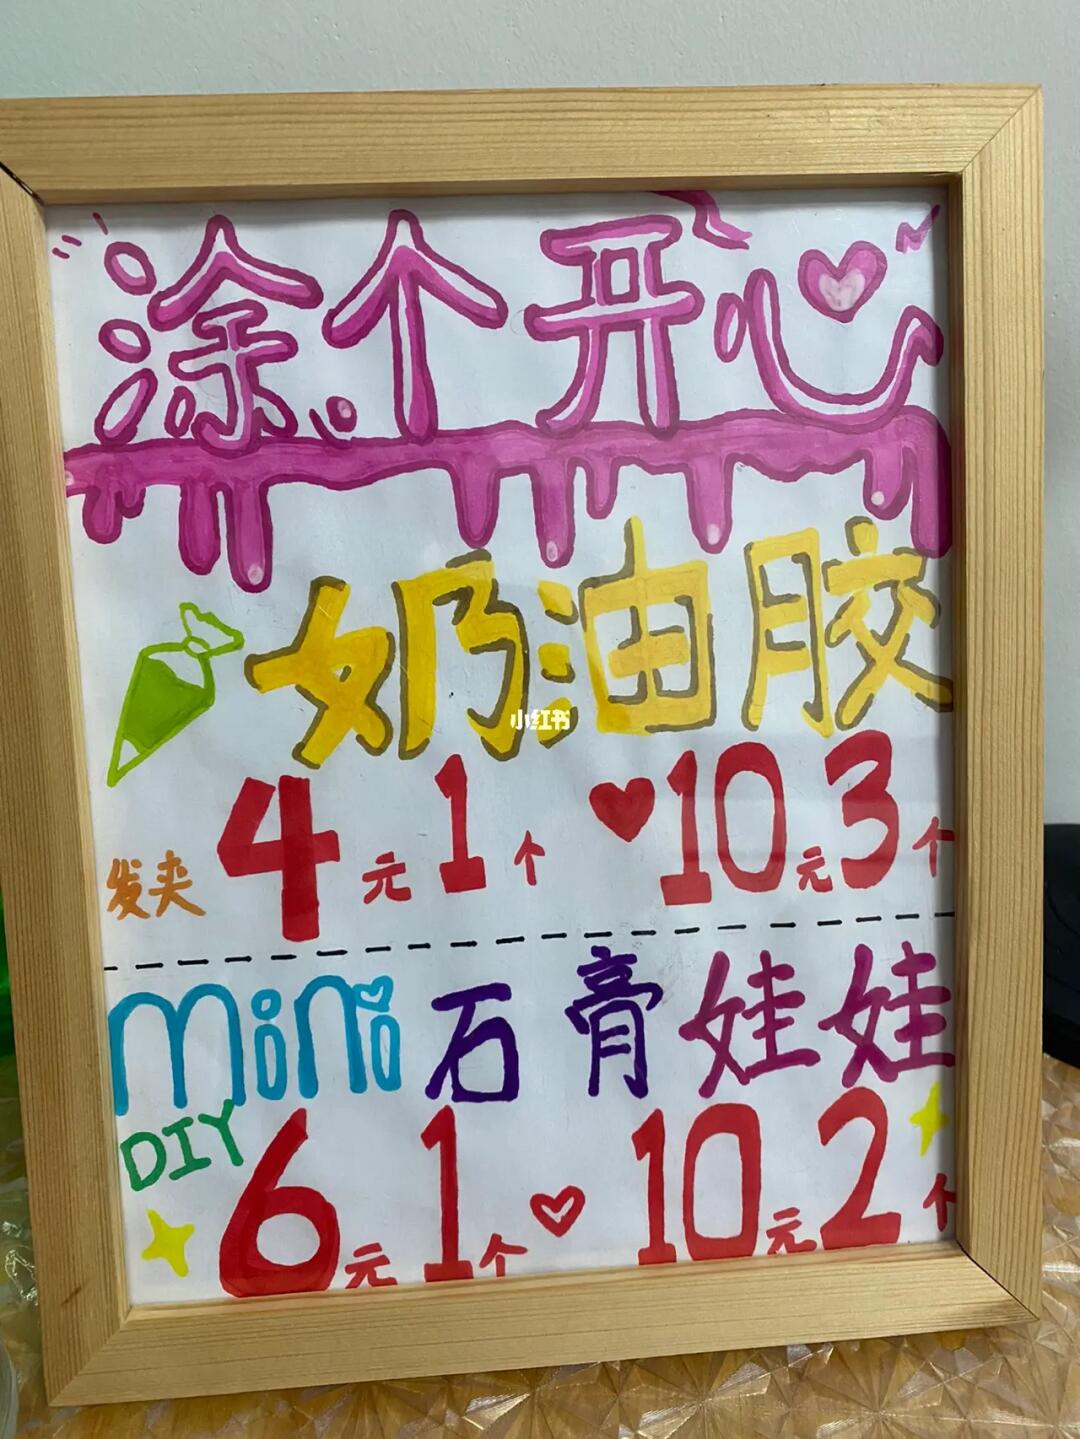 涂个开心
奶油胶
小红书
发夹 4元1个 10元3个
mini石膏娃娃
DIY 6元1个 10元2个